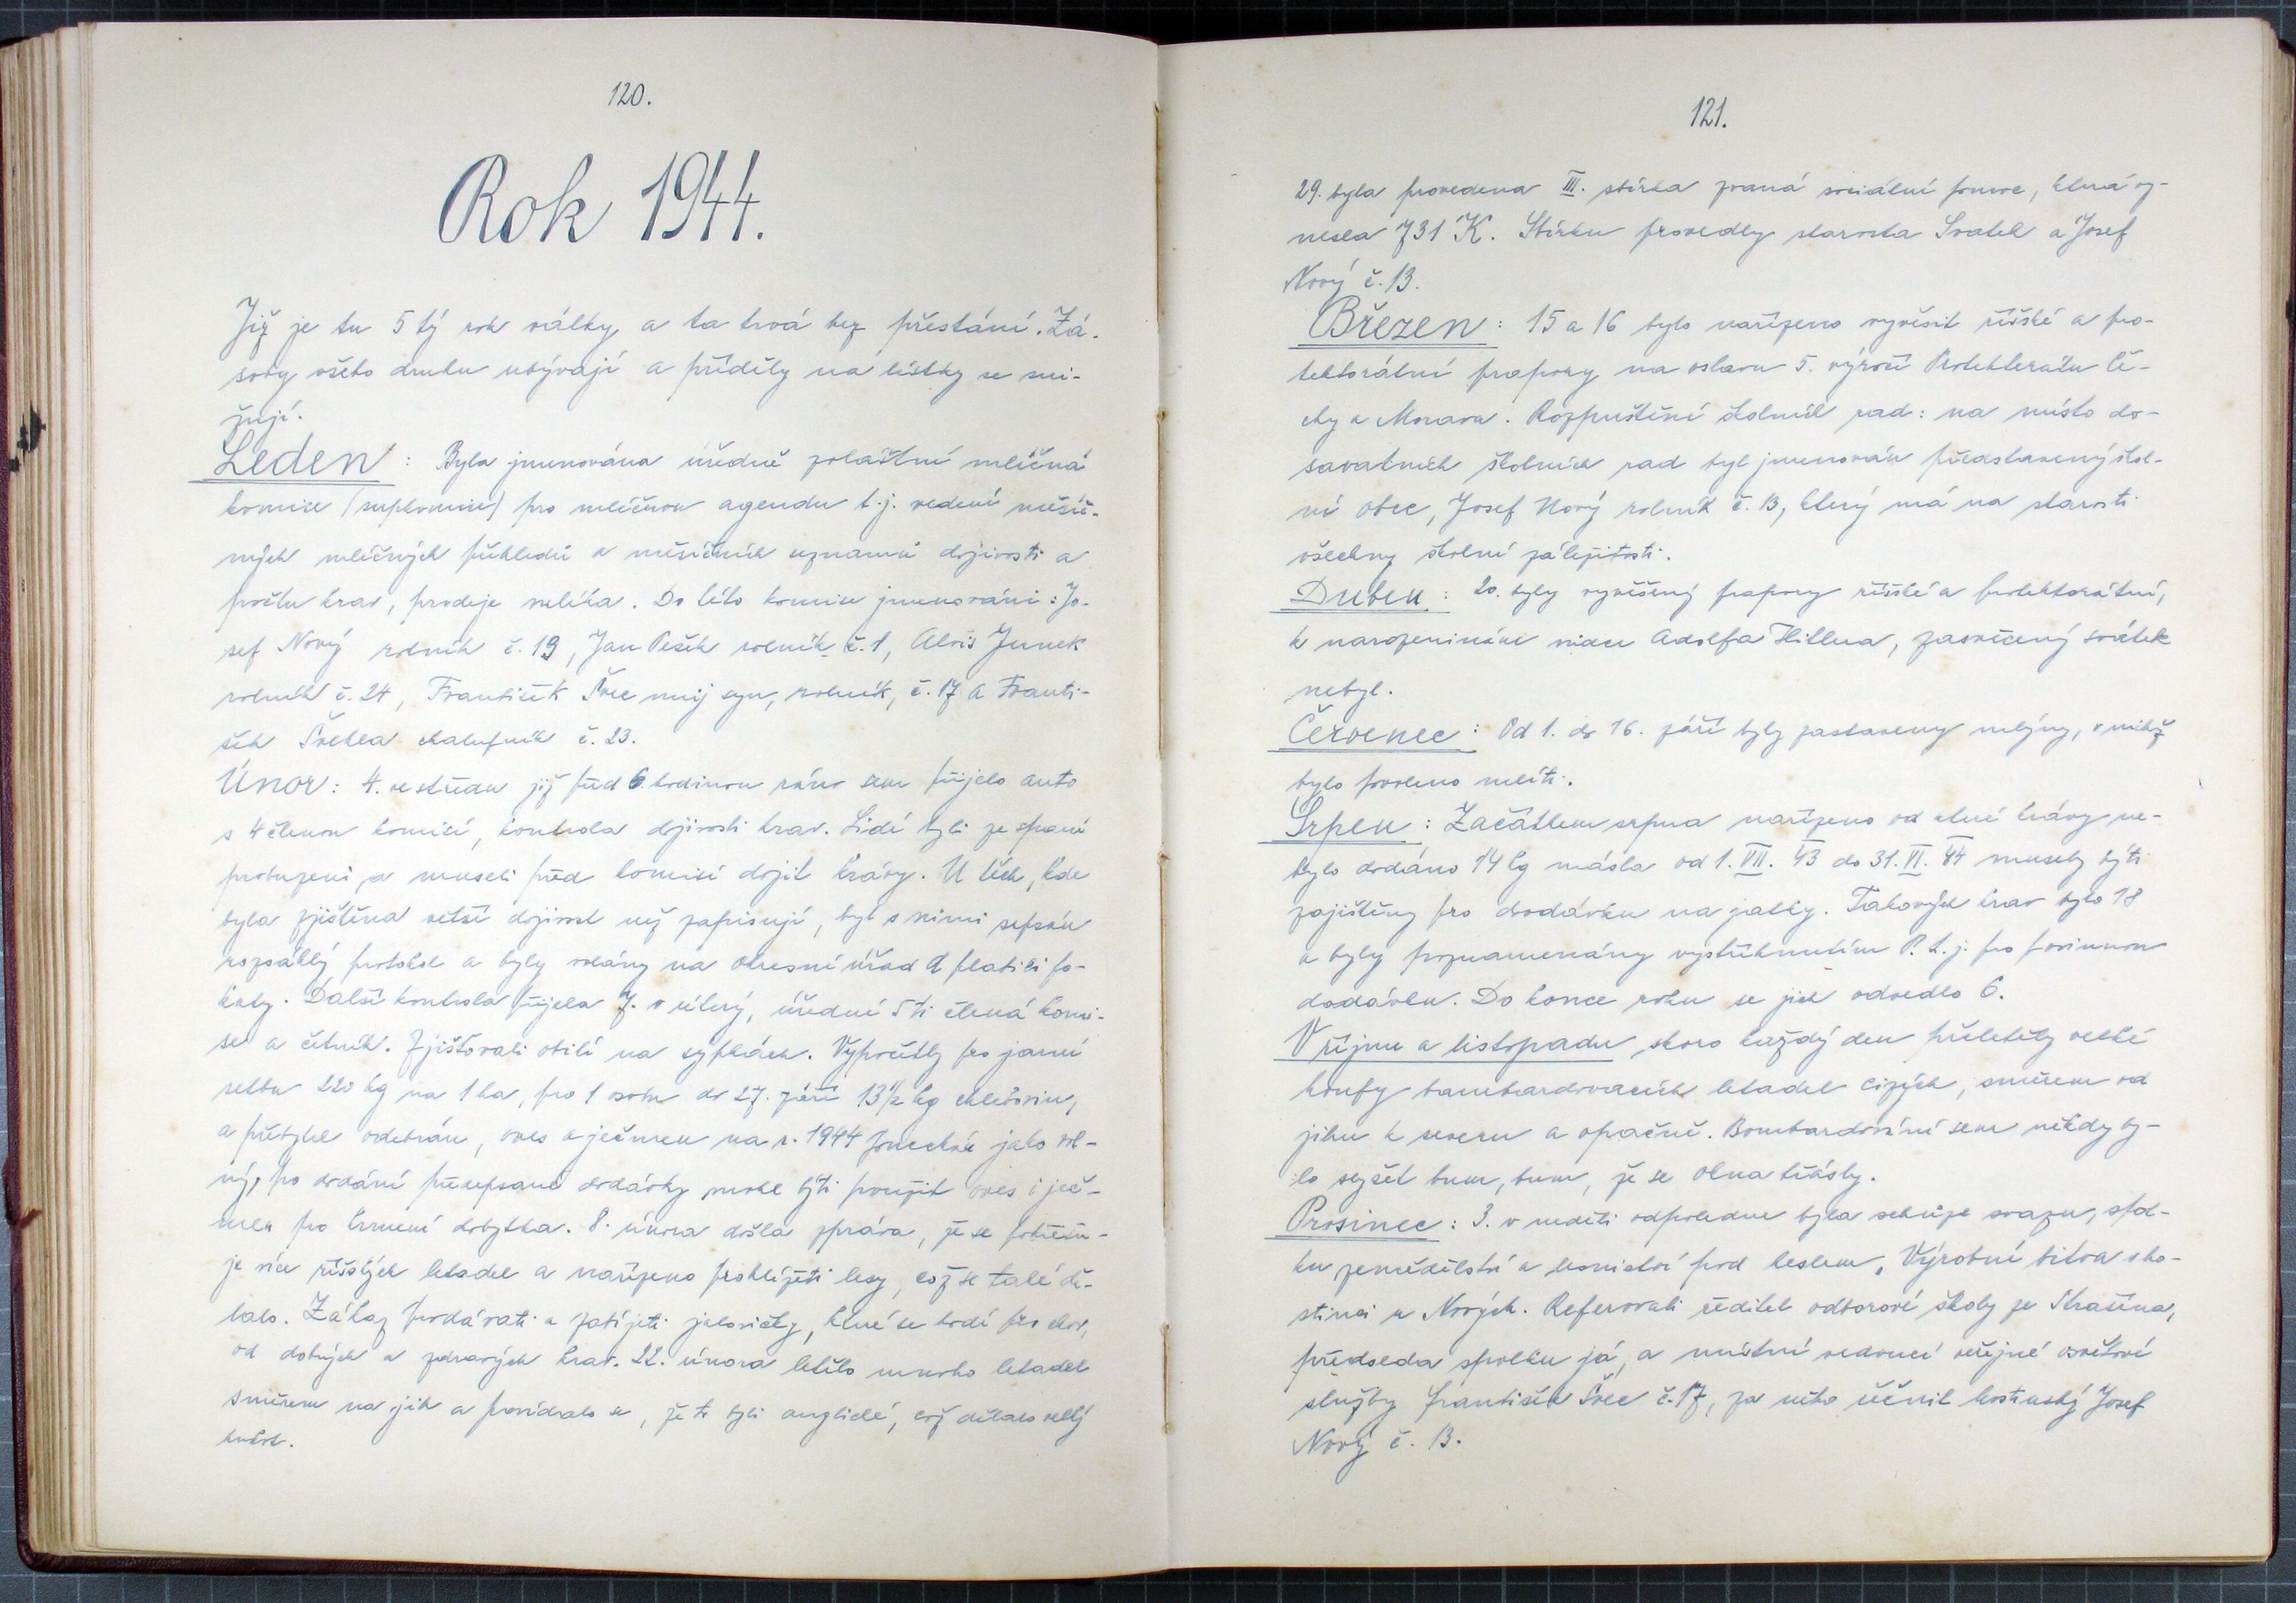 120.
Rok 1944.
Již je tu 5 tý rok války a ta trvá bez přestání. Zá-
soby všeho druhu ubývají a příděly na lístky se sni-
žují.
Leden: Byla jmenována úředně zvláštní mléčná
komise (supkomise) pro mléčnou agendu t. j. vedení měsíč-
ných mléčných přehledů a měsíčních seznamů dojivosti a
počtu krav, prodeje mléka. Do této komise jmenováni: Jo-
sef Nový rolník č. 19, Jan Pešek rolník č. 1, Alois Junek
rolník č. 24, František Švec můj syn, rolník, č. 17 a Franti-
šek Švehla chalupník č. 23.
Únor: 4. ve středu již před 6. hodinou ráno sem přijelo auto
s 4 členou komisí, kontrola dojivosti krav. Lidé byli ze spaní
probuzeni a museli před komisí dojit krávy. U těch, kde
byla zjištěna větší dojivost než zapisují, byl s nimi sepsán
rozsáhlý protokol a byly volány na okresní úřad a platili po-
kuty. Další kontrola přijela 7. v úterý, úřední 5 ti člená komi-
se a četník. Zjišťovali obilí na sypkách. Vypočetly pro jarní
setbu 220 kg na 1 ha, pro 1 osobu do 27. září 13½ kg chlebovin,
a přebytek odebrán, oves a ječmen na r. 1944 ponechán jako vol-
ný, po dodání předepsané dodávky mohl býti použit oves i ječ-
men pro krmení dobytka. 8. února došla zpráva, že se pohřešu-
je více říšských letadel a nařízeno prohlížeti lesy, což se také dě-
lalo. Zákaz prodávati a zabíjeti jalovičky, které se hodí pro chov,
od dobrých a zdravých krav. 22. února letělo mnoho letadel
směrem na jih a povídalo se, že to byli angličé, což dělalo velký
hukot.
121.
29. byla provedena III. sbírka zvaná sociální pomoc, která vy-
nesla 731 K. Sbírku provedly starosta Svatek a Josef
Nový č. 13.
Březen: 15 a 16 bylo nařízeno vyvěsit říšské a pro-
tektorátní prapory na oslavu 5. výročí Protektorátu Če-
chy a Morava. Rozpuštění školních rad: na místo do-
savatních školních rad byl jmenován představený škol-
ní obec, Josef Nový rolník č. 13, který má na starosti
všechny školní záležitosti.
Duben: 20. byly vyvěšený prapory říšské a protektorátní,
k narozeninám vůdce Adolfa Hitlera, zasvěcený svátek
nebyl.
Červenec: Od 1. do 16. září byly zastaveny mlýny, v nichž
bylo povoleno mlíti.
Srpen: Začátkem srpna nařízeno od které krávy ne-
bylo dodáno 14 kg másla od 1. VII. 43 do 31. VI. 44 musely býti
zajištěny pro dodávku na jatky. Takových krav bylo 18
a byly poznamenány vystřihnutím P. t. j. pro povinnou
dodávku. Do konce roku se jich odvedlo 6.
V říjnu a listopadu skoro každý den přeletěly velké
houfy bambardovacích letadel cizých, směrem od
jihu k severu a opačně. Bombardování sem někdy by-
lo slyšet bum, bum, že se okna třásly.
Prosinec: 3. v neděli odpoledne byla schůze svazu, spol-
ku zemědělství a lesnictví pod heslem „Výrobní bitva v ho-
stinci u Nových. Referovali ředitel odborové školy ze Strašína,
předseda spolku já, a místní vedoucí veřejné osvětové
služby František Švec č. 17, za něho účinil hostinský Josef
Nový č. 13.